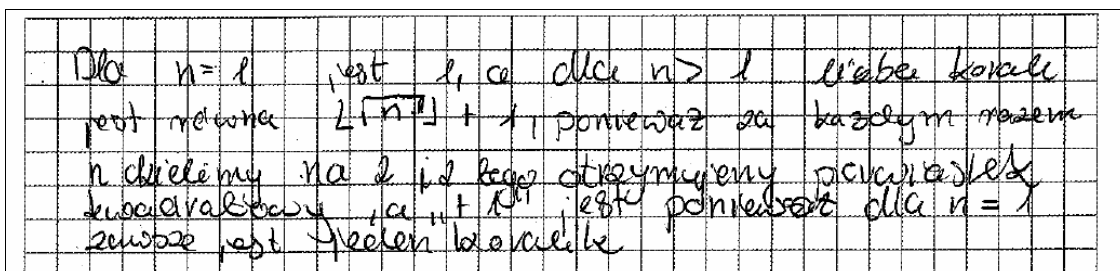 Dla n=1 jest 1, a dla n> 1 liczba korali
jest równa ⌊√n⌋ + 1, ponieważ za każdym razem
n dzielimy na 2 i z tego otrzymujemy pierwiastek
kwadratowy, a „+ 1" jest ponieważ dla n = 1
zawsze jest jeden koralik